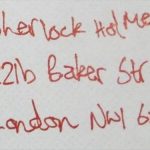 herlock Holme
21b Baker Str
ondon NW1 6